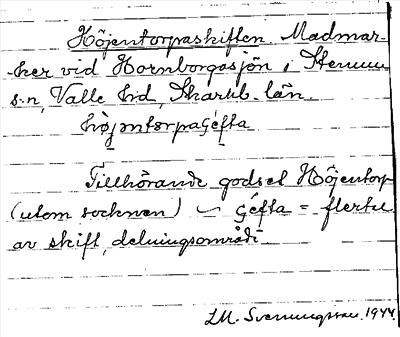 Höjentorpaskiften. Madmar-
ker vid Hornborgasjön i Stenum
s:n, Valle hd, Skarab. län.
höjentorpaſéfta
Tillhörande godset Höjentorp
(utom socknen) ~ ſéfta = flertal
av skift, delningsområde
I.M. Svenungsson. 1944.